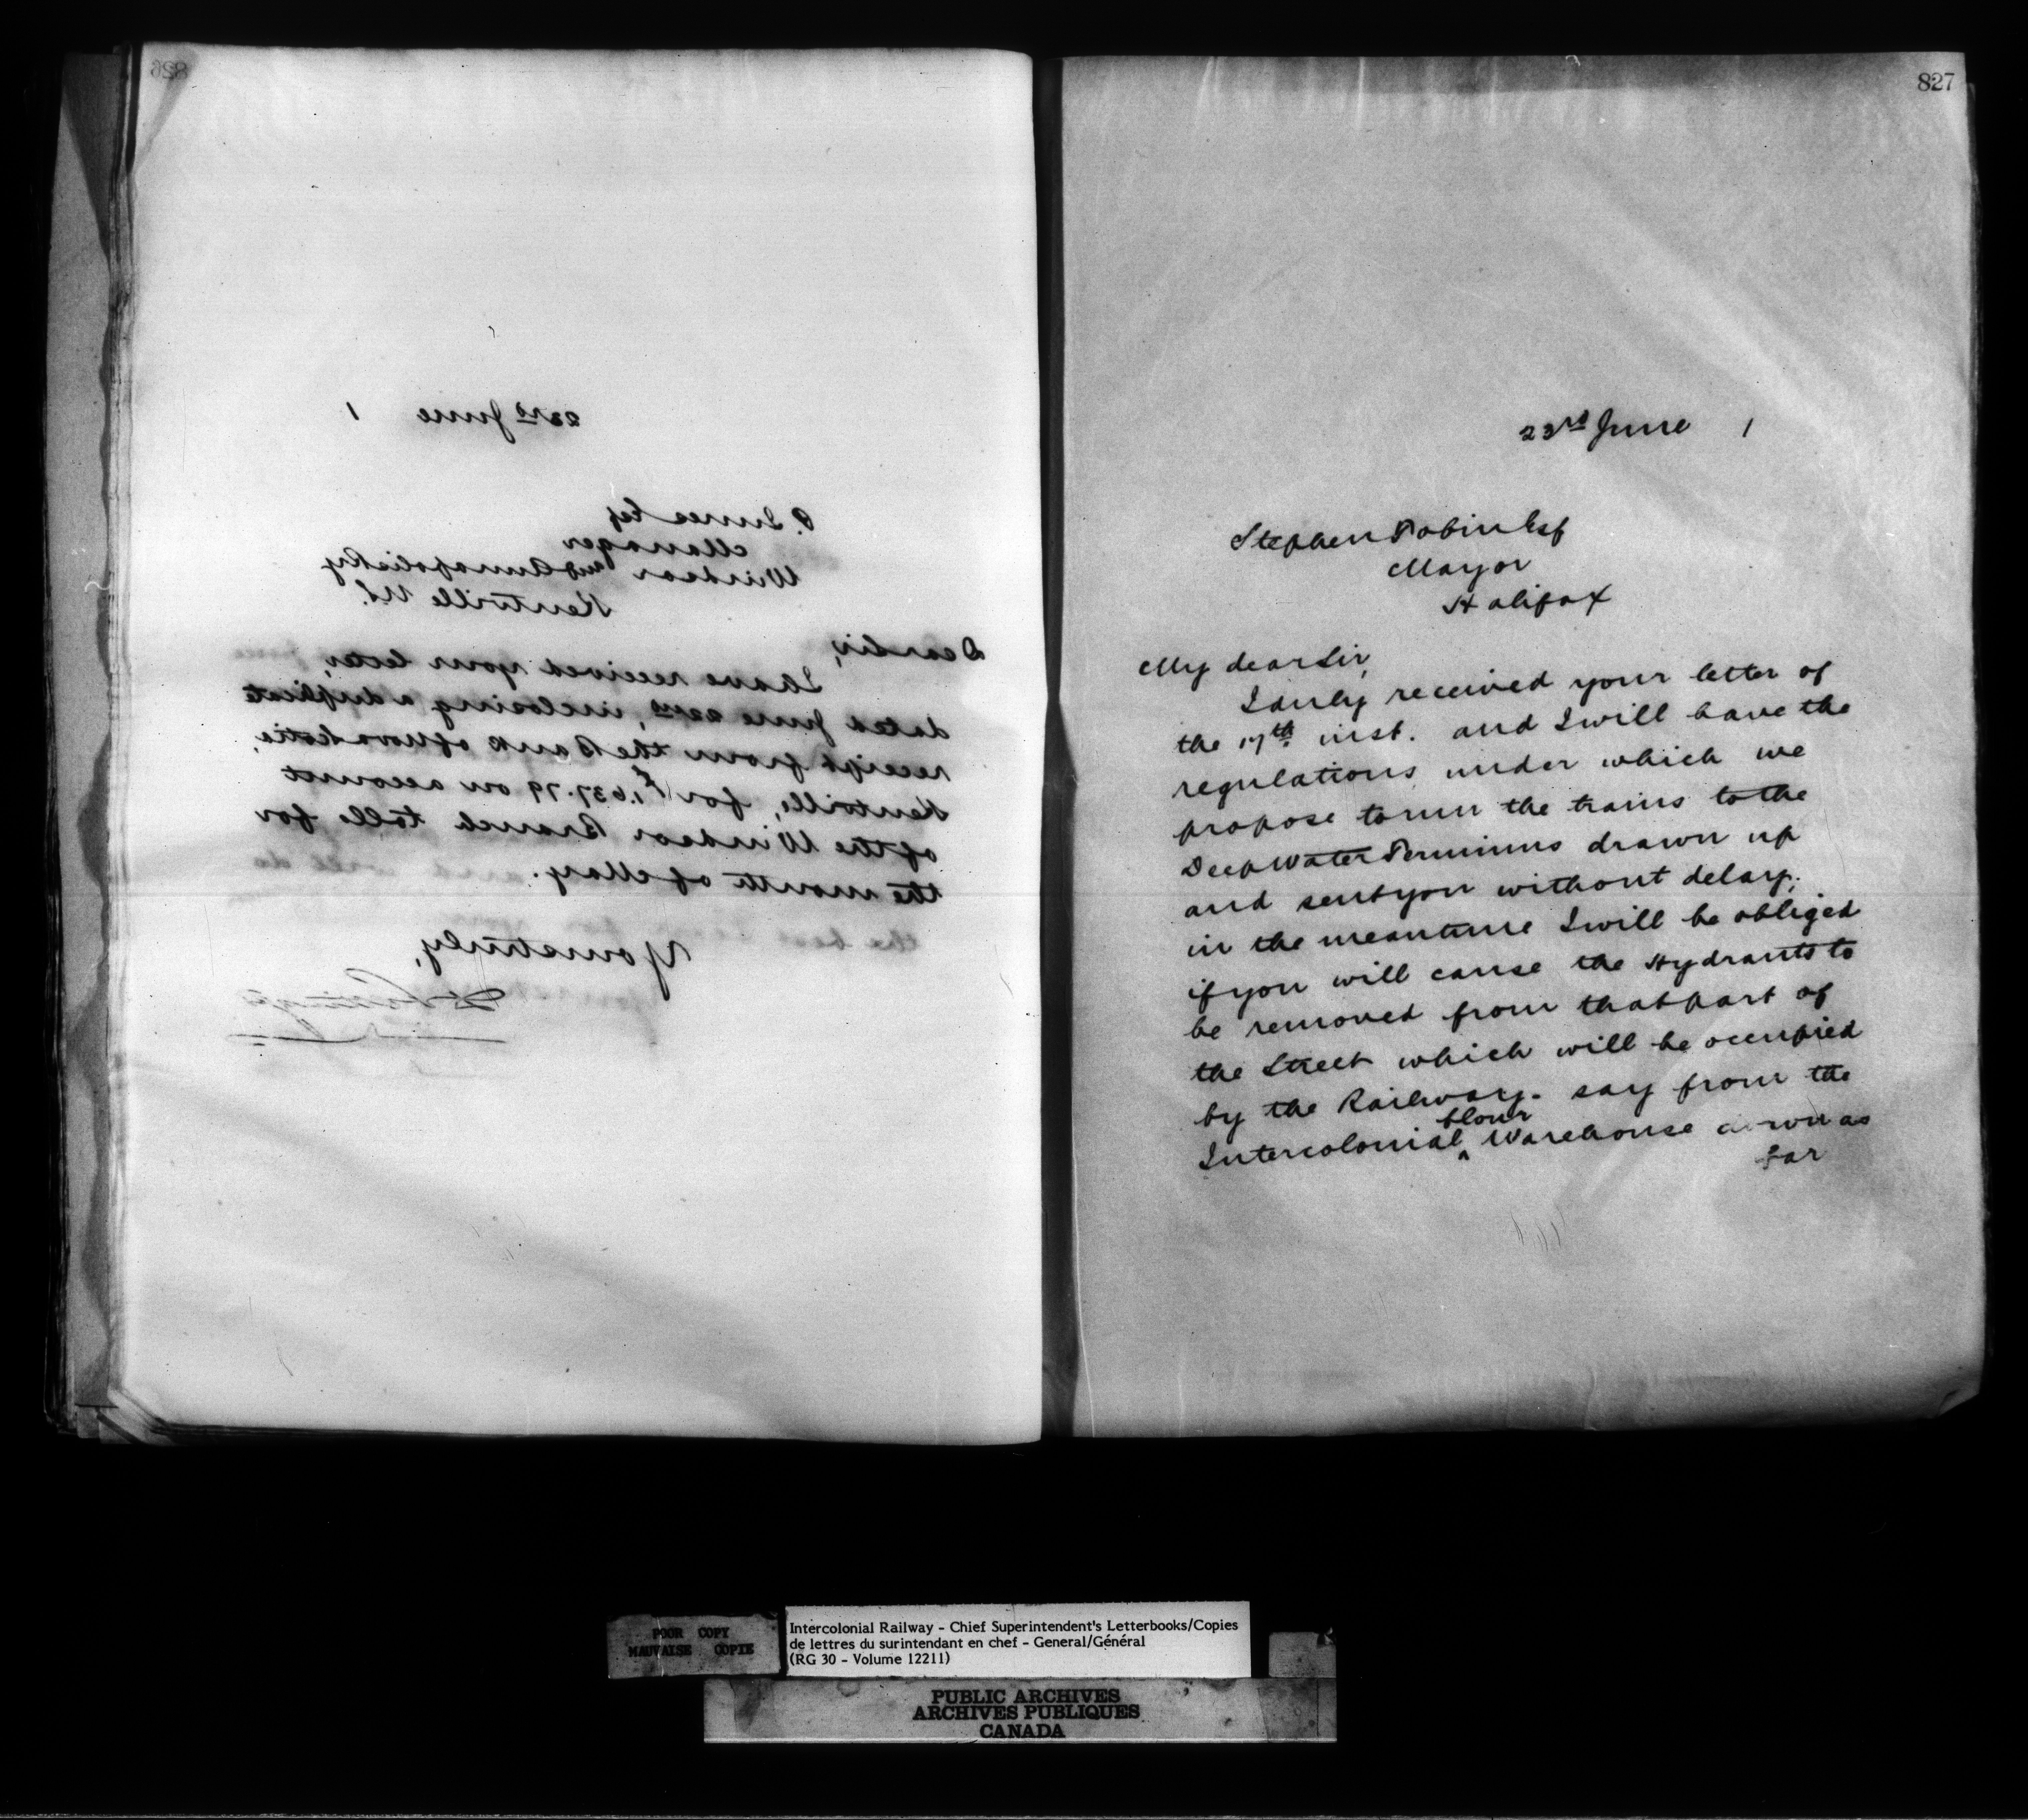 826
23rd June 1
P. Innes Esq
Manager
Windsor and Annapolis Ry
Kentville N.S.
Dear Sir,
I have received your letter,
dated June 22nd, inclosing a duplicate
receipt from the Bank of Nova Scotia,
Kentville, for $1,637.79 on account
of the Windsor Branch tolls for
the month of May.
Yours truly,
827
23rd June 1
Stephen Tobin Esq
Mayor
Halifax
My dear Sir,
I duly received your letter of
the 17th inst. and I will have the
regulations under which we
propose to run the trains to the
Deep Water Terminus drawn up
and sent you without delay;
in the meantime I will be obliged
if you will cause the Hydrants to
be removed from that part of
the Street which will be occupied
by the Railway. say from the
Intercolonial ^ flour Warehouse down as
far
POOR COPY
MAUVAISE COPIE
Intercolonial Railway - Chief Superintendent's Letterbooks/Copies
de lettres du surintendant en chef - General/Général
(RG 30 - Volume 12211)
PUBLIC ARCHIVES
ARCHIVES PUBLIQUES
CANADA